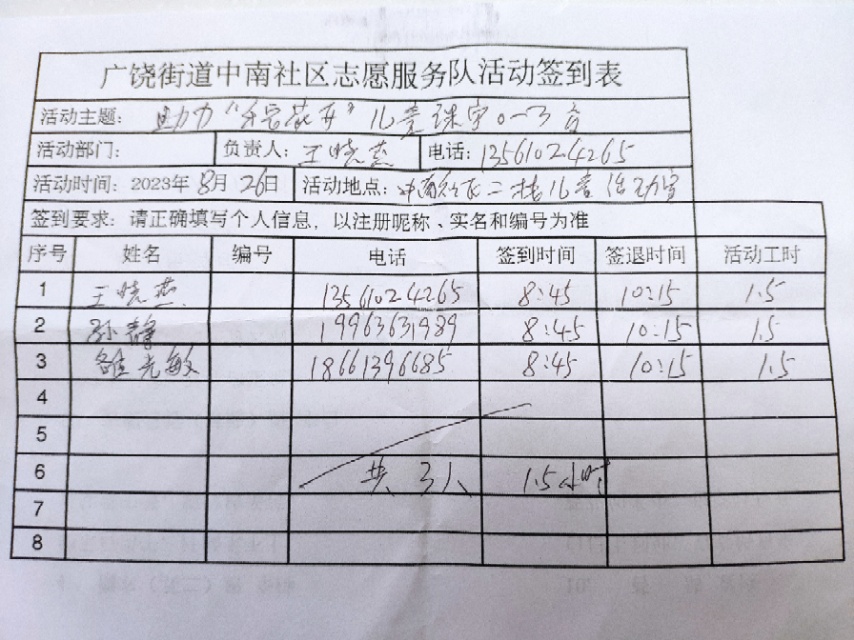 广饶街道中南社区志愿服务队活动签到表
活动主题: 助力"分容花开"儿童珠宇0-3音
活动部门: 负责人: 王晓杰 电话: 13561024265
活动时间: 2023年8月26日 活动地点: 中南社区二楼儿童活动室
签到要求: 请正确填写个人信息, 以注册昵称、实名和编号为准
序号 姓名 编号 电话 签到时间 签退时间 活动工时
1 王晓杰 13561024265 8:45 10:15 1.5
2 孙静 19963631989 8:45 10:15 1.5
3 光敏 18661396685 8:45 10:15 1.5
4
5
6 共3人 1.5小时
7
8